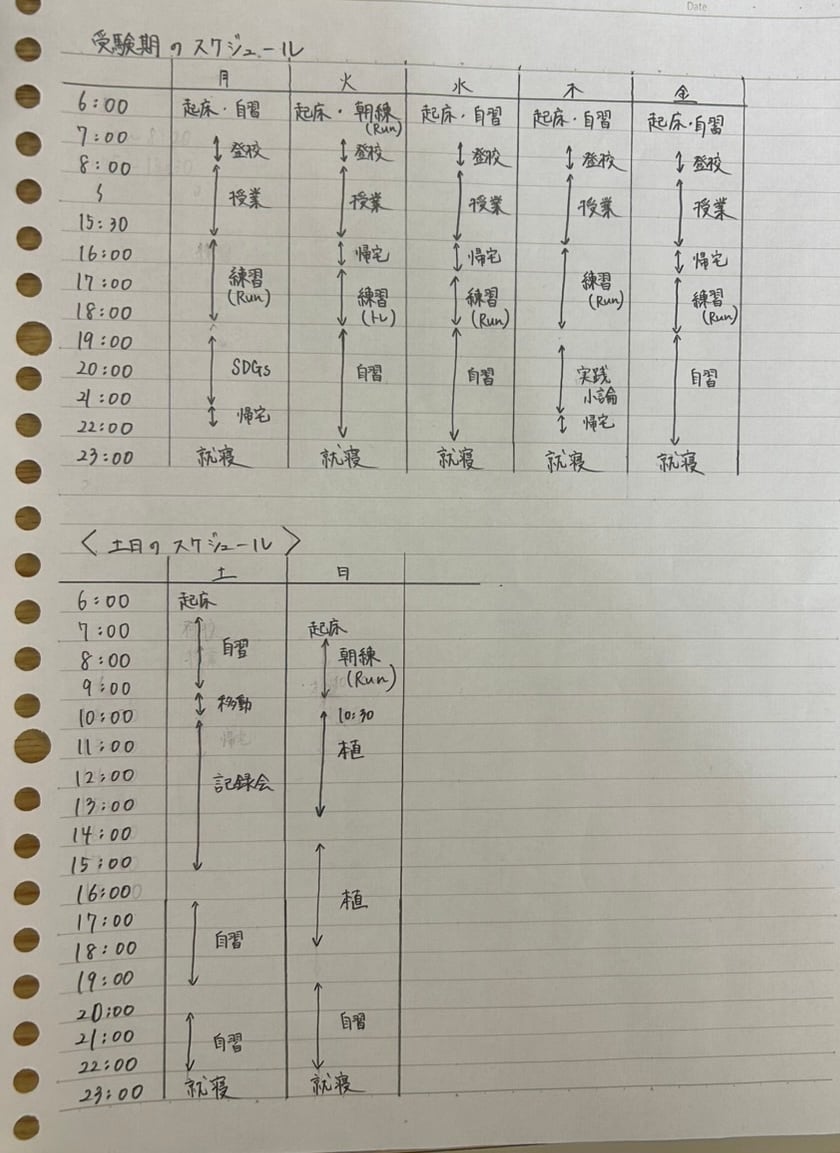 Date
受験期のスケジュール
月 火 水 木 金
6:00 起床・自習 起床・朝練(Run) 起床・自習 起床・自習 起床・自習
7:00 登校 登校 登校 登校 登校
8:00
〜 授業 授業 授業 授業 授業
15:30
16:00 帰宅 帰宅 帰宅
17:00 練習(Run) 練習(トレ) 練習(Run) 練習(Run) 練習(Run)
18:00
19:00
20:00 SDGs 自習 自習 実践小論 自習
21:00
22:00 帰宅 帰宅
23:00 就寝 就寝 就寝 就寝 就寝
〈土日のスケジュール〉
土 日
6:00 起床
7:00 起床
8:00 自習 朝練(Run)
9:00
10:00 移動 10:30
11:00 植
12:00 記録会
13:00
14:00
15:00
16:00 植
17:00
18:00 自習
19:00
20:00 自習
21:00 自習
22:00
23:00 就寝 就寝